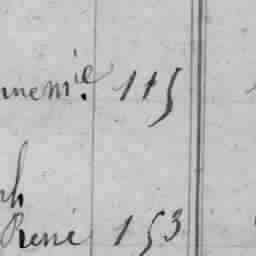 nnem.ie 115
ph
René 153